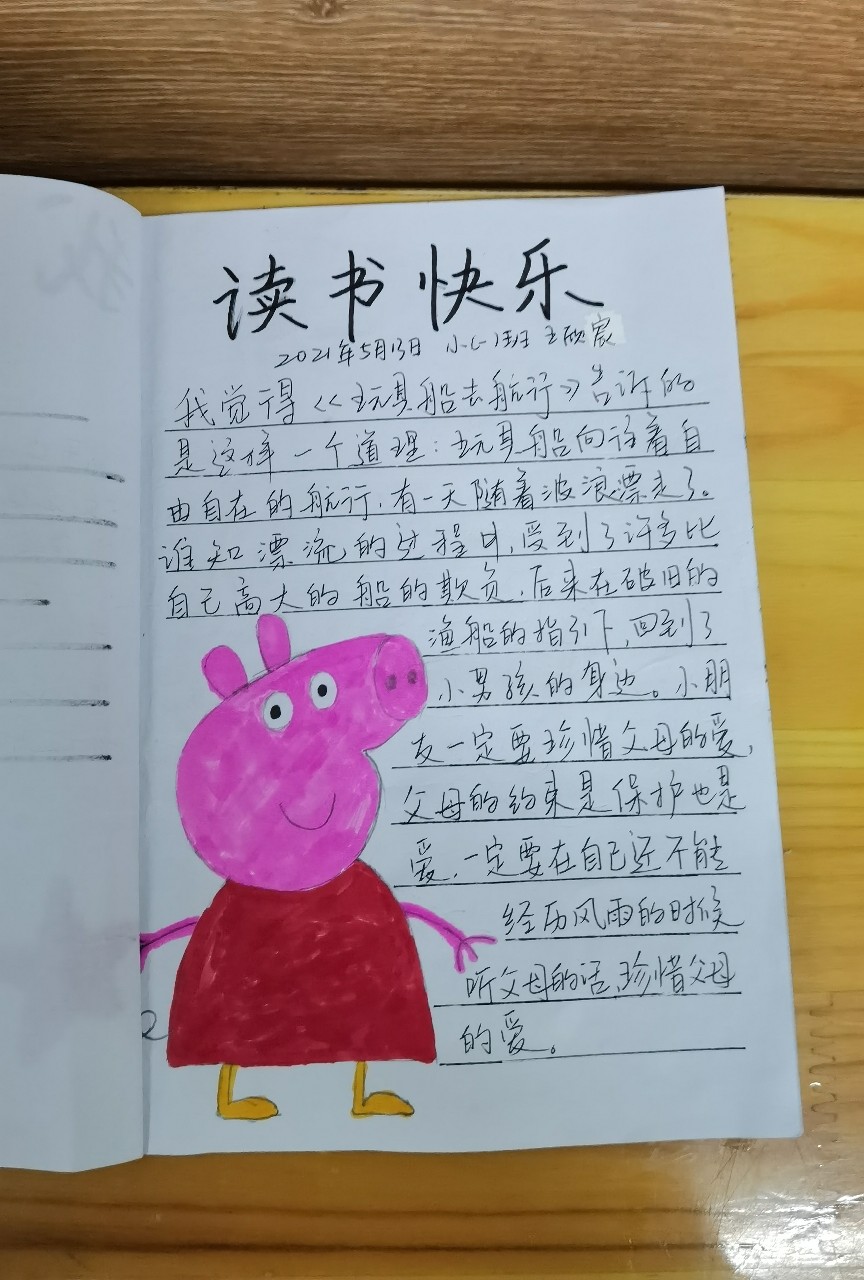 读书快乐
2021年5月13日 小(一)班 王硕宸
我觉得《玩具船去航行》告诉的
是这样一个道理：玩具船向往着自
由自在的航行，有一天随着波浪漂走了。
谁知漂流的过程中，受到了许多比
自己高大的船的欺负，后来在破旧的
渔船的指引下，回到了
小男孩的身边。小朋
友一定要珍惜父母的爱，
父母的约束是保护也是
爱，一定要在自己还不能
经历风雨的时候
听父母的话，珍惜父母
的爱。